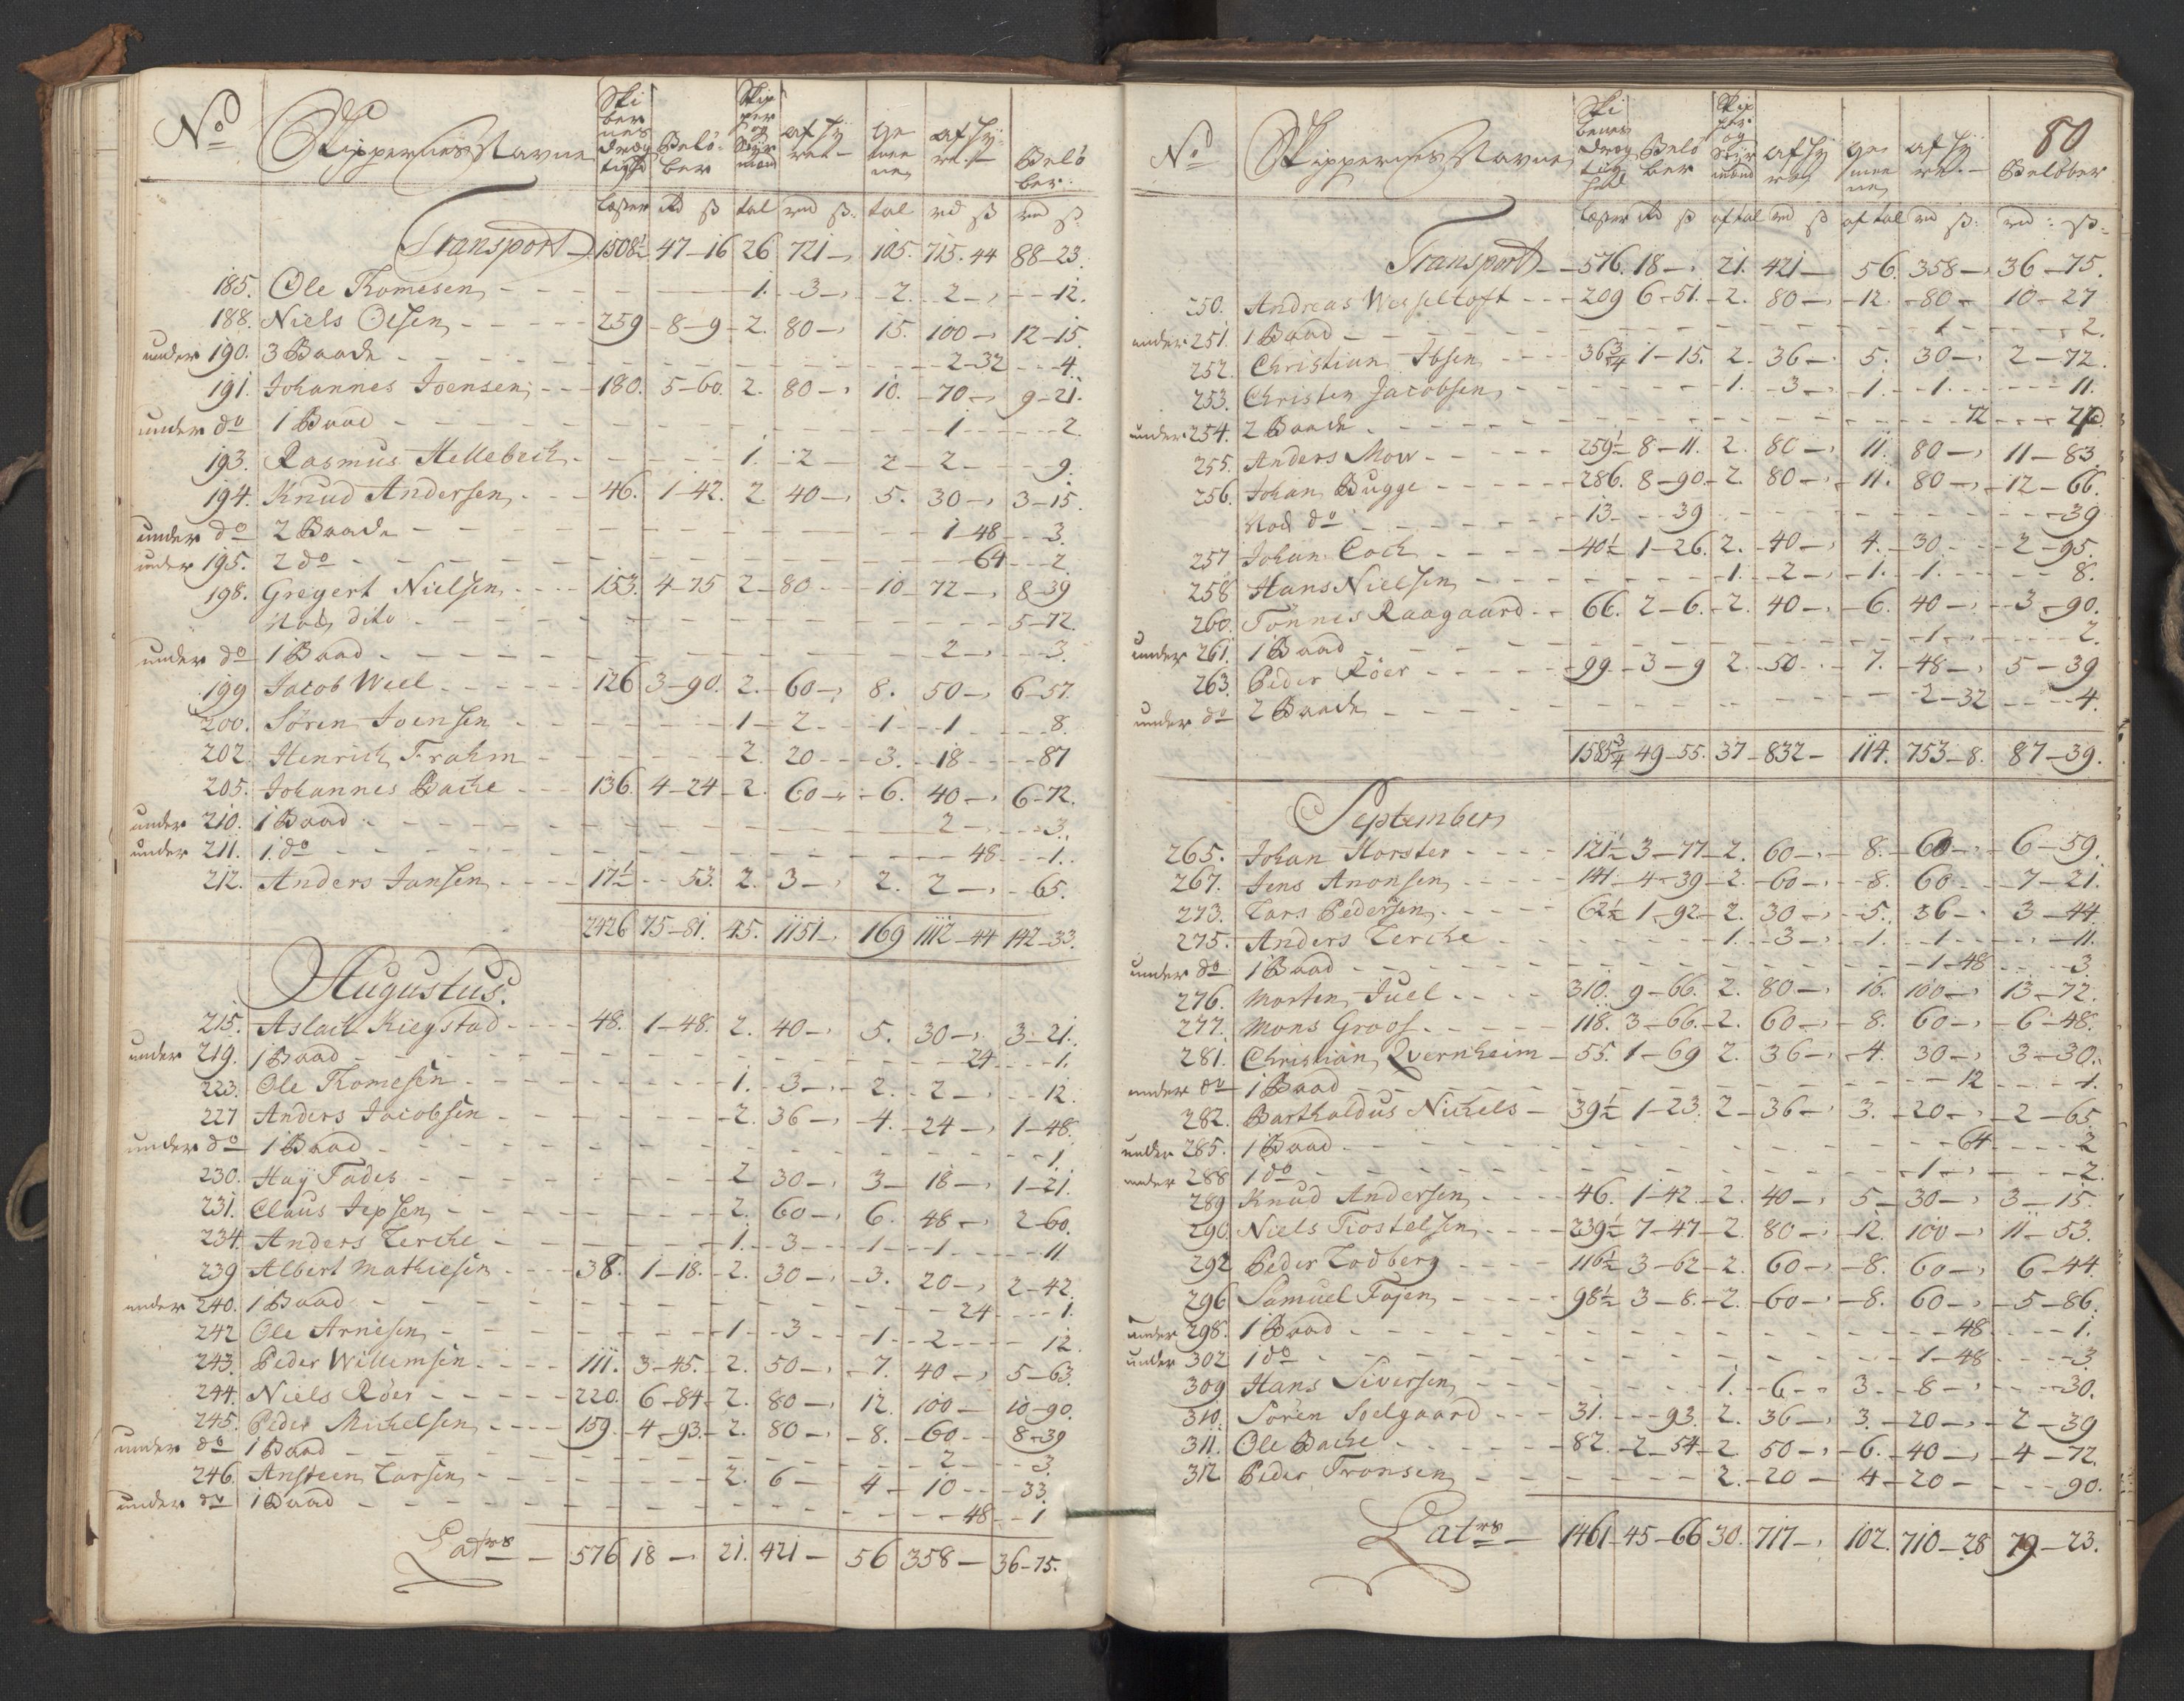 No | Skippernes Navne | Skibernes drægtighed | Beløber | Skipper og Styrmænd | af hyret | gemeene | af hyre | Beløber
læster | rd ß | tal | rd ß | tal | rd ß | rd ß
Transport 1508½ 47-16 26 721- 105. 715.44 88-23.
185. Ole Thomesen 1. 3- 2. 2- 12.
188. Niels Olsen 259 8-9 2. 80- 15. 100- 12-15.
under 190. 3 Baade 2-32 4.
191. Johannes Joensen 180. 5-60. 2. 80- 10. 70- 9-21.
under do 1 Baad 1 2.
193. Rasmus Hellebech 1. 2- 2- 2- 9.
194. Knud Andersen 46. 1-42. 2 40- 5. 30- 3-15.
under do 2 Baade 1-48 3.
under 195. 2 do 64 2.
198. Gregert Nielsen 153. 4-75 2 80 10 72- 8-39
Nok dito 5-72.
under do 1 Baad 2- 3.
199 Jacob Weel 126 3-90. 2. 60- 8. 50- 6-57.
200. Sören Joensen 1 2 1 1 8.
202. Henrich Frahm 2. 20 3. 18 87
205. Johannes Bache 136. 4-24 2. 60- 6. 40- 6-72.
under 210. 1 Baad 2- 3.
under 211. 1 do 48 1.
212. Anders Jansen 17½ 53. 2. 3- 2. 2- 65.
2426 75-81. 45. 1151- 169 1112-44 142-33.
Augustus.
215. Aslach Kiegstad 48. 1-48. 2. 40- 5. 30- 3-21.
under 219. 1 Baad 24 1.
223. Ole Thomesen 1. 3- 2. 2- 12.
227 Anders Jacobsen 2. 36- 4. 24- 1-48.
under do 1 Baad 1
230. Hay Fades 2 30- 3- 18- 1-21.
231. Claus Jepsen 2. 60- 6. 48- 2-60.
234. Anders Lerche 1. 3 1 1 11
239 Albert Mathiesen 38. 1-18. 2. 30- 3. 20- 2-42.
under 240. 1 Baad 24 1.
242 Ole Arnesen 1 3 1 2 12.
243. Peder Willemsen 111. 3-45. 2. 50- 7. 40- 5-63.
244. Niels Röer 220. 6-84 2. 80- 12. 100- 10-90.
245. Peder Michelsen 159. 4-93. 2. 80- 8. 60 8-39
under do 1 Baad 2 3.
246. Ansteen Larsen 2. 6- 4- 10 33.
under do 1 Baad 48 1
Latus 576 18- 21. 421- 56 358- 36-75.
80
No | Skippernes Navne | Skibenes drægtighed | Beløber | Skipper og Styrmænd | af hyret | gemeene | af hyre | Beløber
læster | rd ß | aftal | rd ß | aftal | rd ß | rd ß
Transport 576. 18- 21. 421- 56. 358- 36-75.
250. Andreas Wesseltoft 209 6-51. 2. 80- 12. 80- 10-27
under 251. 1 Baad 1 2.
252. Christian Ibsen 36¾ 1-15. 2. 36- 5. 30- 2-72.
253. Christen Jacobsen 1. 3- 1. 1. 11.
under 254. 2 Baade 72
255. Anders Mow 259½ 8-11. 2. 80- 11. 80- 11-83.
256. Johan Bugge 286. 8-90 2. 80- 11. 80- 12-66.
Nok do 13 39 39
257 Johan Coch 40½ 1-26. 2. 40- 4. 30 2-95.
258 Hans Nielsen 1. 2- 1. 1. 8.
260. Tönnes Raagaard 66. 2-6. 2. 40- 6. 40- 3-90.
under 261. 1 Baad 1 2.
263. Peder Röer 99 3-9 2 50 7. 48- 5-39
under do 2 Baade 2-32 4.
1585¾ 49-55. 37 832- 114. 753-8. 87-39.
September
265. Johan Horster 121½ 3-77 2. 60- 8. 60- 6-59.
267. Jens Anonsen 141 4-39 2. 60- 8. 60 7-21.
273. Lars Pedersen 62½ 1-92 2. 30- 5. 36- 3-44.
275. Anders Lerche 1. 3- 1. 1 11.
under do 1 Baad 1-48 3
276. Morten Juel 310. 9-66. 2. 80- 16. 100- 13-72.
277. Mons Groos 118. 3-66. 2. 60- 8. 60- 6-48.
281. Christian Qvernheim 55. 1-69 2. 36- 4. 30- 3-30.
under do 1 Baad 12 1.
282. Bartholdus Nichels 39½ 1-23. 2 36- 3. 20- 2-65.
under 285. 1 Baad 64 2
under 288 1 do 1 2.
289 Knud Andersen 46. 1-42 2. 40- 5- 30- 3-15.
290. Niels Tiostelsen 239½ 7-47 2. 80- 12. 100- 11-53.
292 Peder Lodberg 116½ 3-62 2. 60- 8. 60- 6-44.
296 Samuel Fojen 98½ 3-8. 2. 60- 8. 60- 5-86.
under 298. 1 Baad 48 1.
under 302 1 do 1-48 3.
309 Hans Siversen 1. 6- 3. 8- 30.
310. Sören Soelgaard 31. 93. 2. 36- 3. 20- 2-39
311. Ole Bache 82. 2-54 2. 50- 6. 40- 4-72.
312 Peder Tronsen 2. 20- 4 20- 90.
Latus 1461 45-66 30. 717- 102. 710-28 79-23.